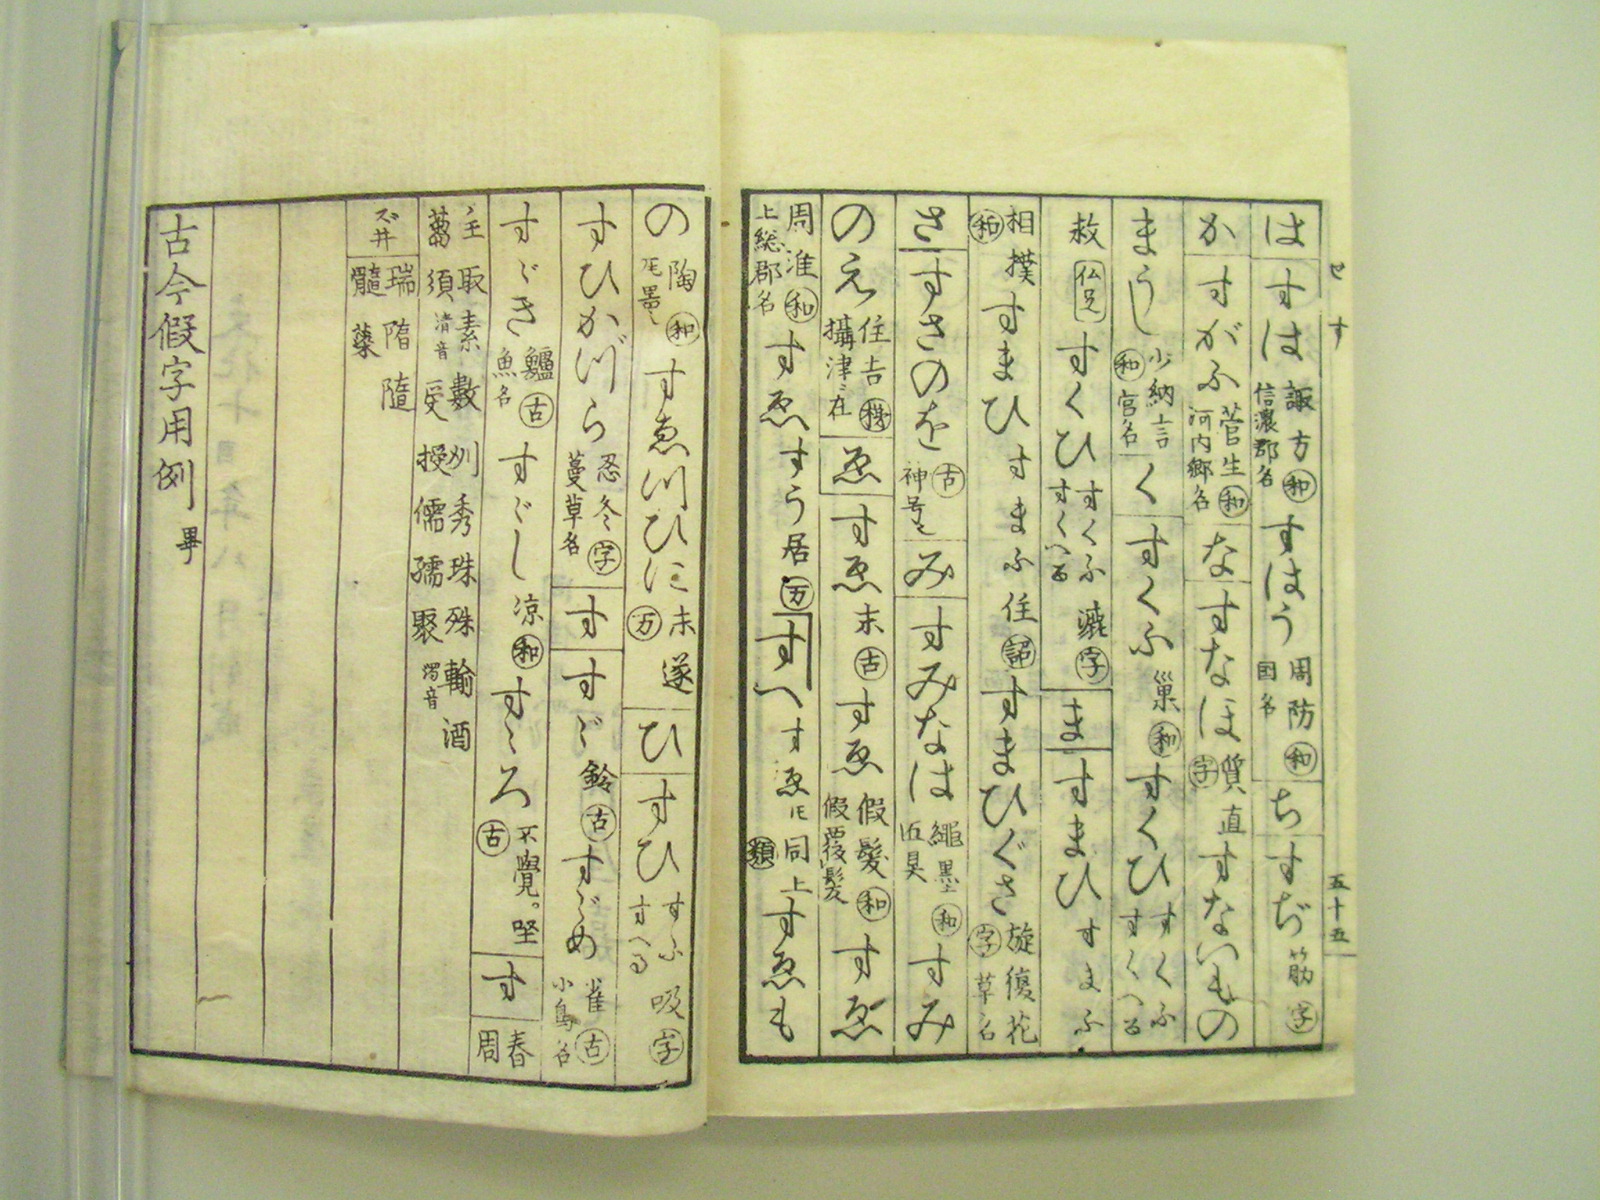 せ す
五十五
は すは 諏方 信濃郡名 和 すはう 周防 国名 和 ち すぢ 筋 字
か すがふ 菅生 河内郷名 和 な すなほ 質直 字 すないもの
まうし 少納言 和 官名 く すくふ 巣 和 すくひ すくふ すくへる
救 すくひ すくふ すくへる 漉 字 ま すまひ すまふ
相撲 和 すまひ すまふ 住 すまひぐさ 旋復花 字 草名
さ すさのを 古 神号 み すみなは 繩墨 和 すみ
のえ 住吉 攝津ニ在 ゑ すゑ 末 古 すゑ 假髪 假覆髪 和 すゑ
周淮 和 上総郡名 すゑ すう 居 万 すへ すゑニモ 同上 類 すゑも
の 陶 和 すゑつひに 末遂 万 ひ すひ すふ すへる 吸 字
すひかづら 忍冬 蔓草名 字 す すゞ 鈴 古 すゞめ 雀 小鳥名 古
すゞき 鱸 魚名 古 すゞし 凉 和 すゝろ 不覺 坐 古 す 春 周
主取素數刈秀珠殊輸酒
蒭須 清音 受授儒孺聚 濁音
ズ井 瑞隋隨 髓蘂
古今假字用例 畢